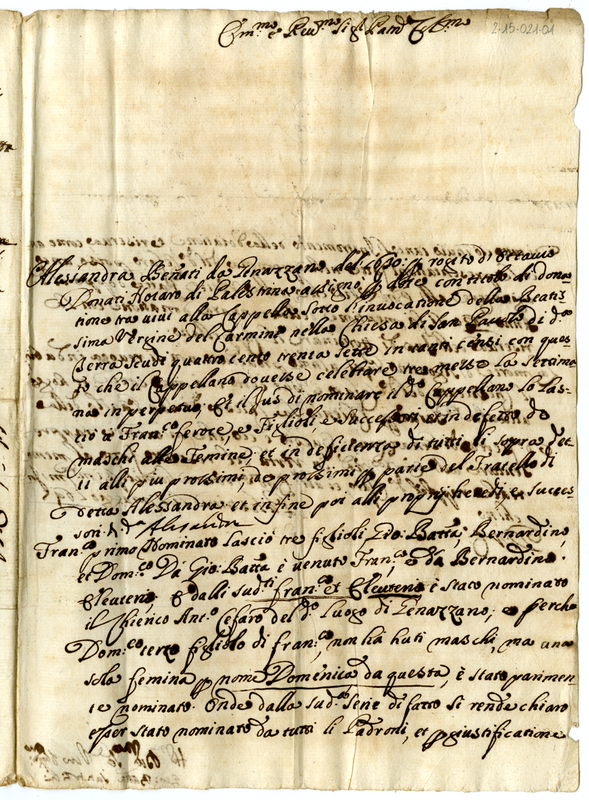 2-15-021-01
Em.mo e Rev.mo Sig.r Pad.ne Col.mo
Alessandra Benati da Genazzano del 1630: p rogito di Ottavio
Donati Notaro di Palestrina assignò p atto con titolo di dona-
tione tra vivi alla Cappella sotto l'invocatione della Beatis-
sima Vergine del Carmine nella Chiesa di San Paulo di d.a
Terra scudi quattro cento trenta sette in tanti censi con questo
che il Cappellano dovesse celebrare tre messe la settima-
na in perpetuo, Et il Jus di nominare il d.o Cappellano lo las-
ciò a Fran.co feroce, e Figlioli, e successori, et in defetto de
maschi alle Femine, et in deficienza di tutti li sopra det-
ti alli piu prossimi, de prossimi p parte del Fratello di
detta Alessandra, et in fine poi alli proprij heredi, e succes-
sori di d.a Alexandra
Fran.co primo Nominato lasciò tre figlioli Gio: Batta, Bernardino,
et Dom.co Da Gio: Batta è venuto Fran.co e da Bernardino
Eleuterio, E dalli sud.ti fran.co et Eleuterio è stato nominato
il Chierico Ant.o Cefaro del d.o luogo di Genazzano; e perche
Dom.co terzo figliolo di fran.co non hà hauti maschi, ma una
sola femina p nome Domenica da questa, è stato parimen-
te nominato. Onde dalla sud.a serie di fatto si rende chiaro
esser stato nominato da tutti li Padroni, et p giustificatione